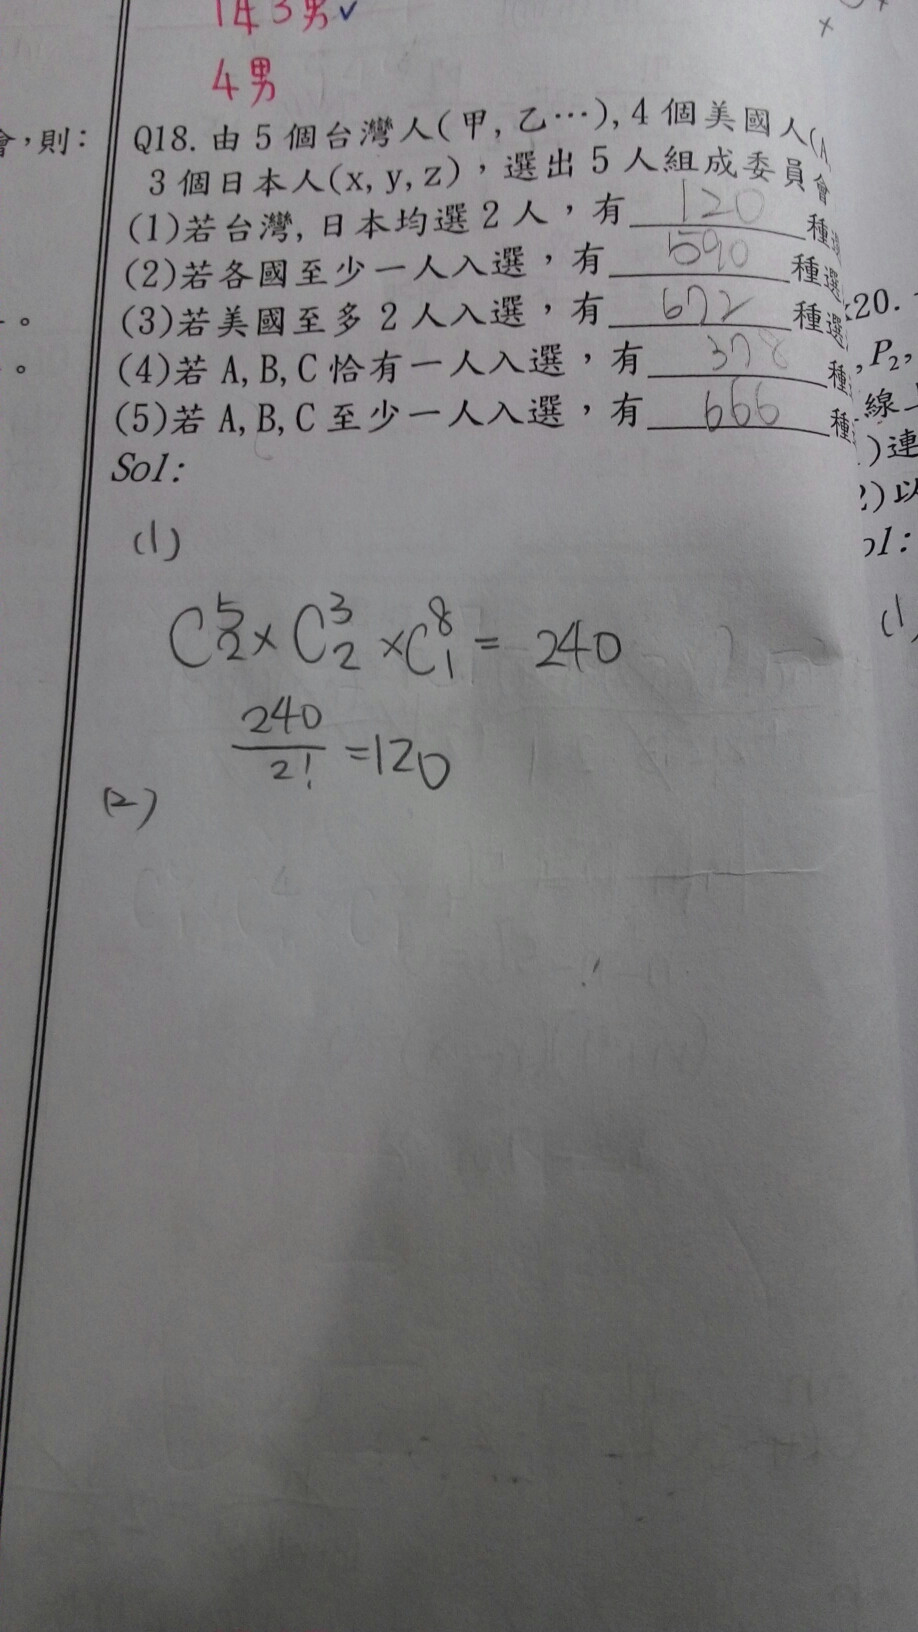 1女3男✓
4男
會，則：
Q18. 由 5 個台灣人(甲, 乙…), 4 個美國人(A,
3 個日本人(x, y, z)，選出 5 人組成委員會
(1)若台灣, 日本均選 2 人，有 120 種選
(2)若各國至少一人入選，有 590 種選
(3)若美國至多 2 人入選，有 672 種選
(4)若 A, B, C 恰有一人入選，有 378 種
(5)若 A, B, C 至少一人入選，有 666 種
Sol:
(1)
C⁵₂ × C³₂ × C⁸₁ = 240
240/2! = 120
(2)
20.
, P₂,
線
)連
2)以
ol:
(1)